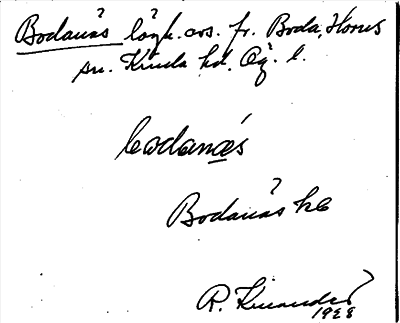 Bodanäs lägh. avs. fr. Boda, Horns
sn. Kinda hd. Ög. l.
bodanäs
Bodanäs hb
R. Kinander
1928